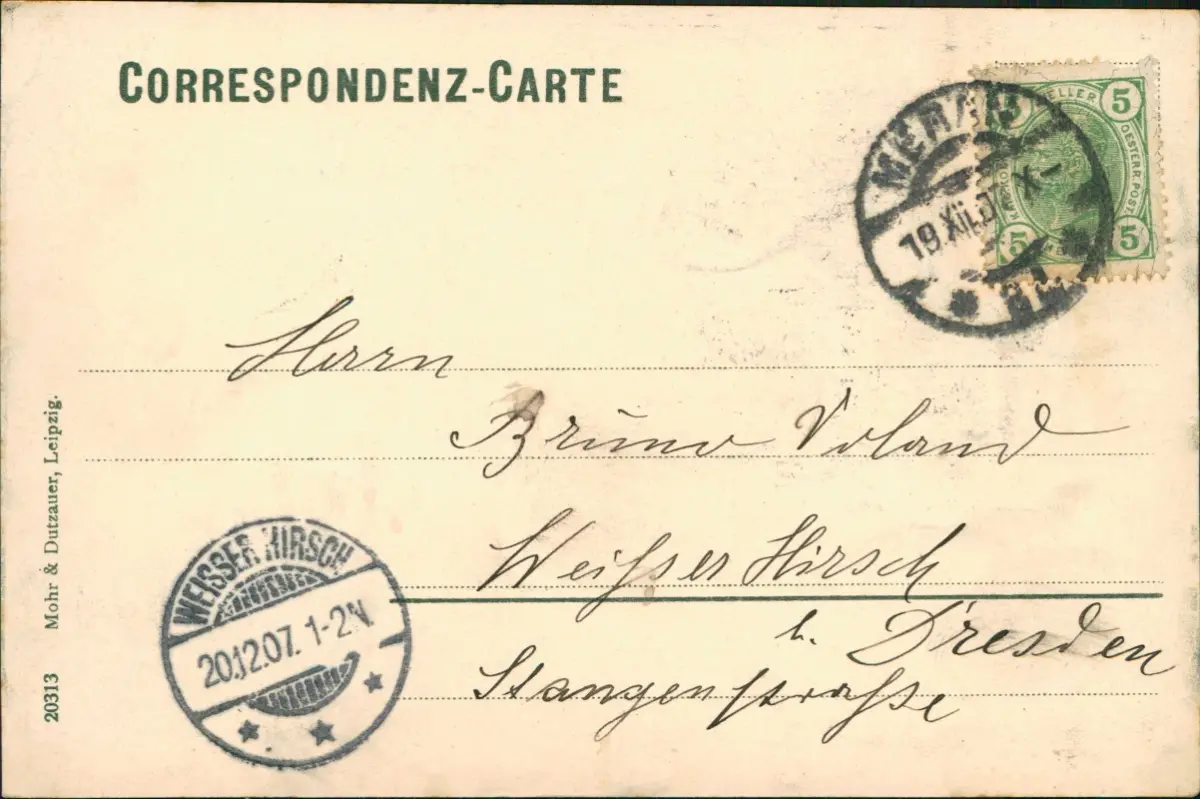 CORRESPONDENZ-CARTE
MERAN
19.XII.07
HELLER
OESTERR. POST
5
5
5
Herrn
Bruno Voland
Weißer Hirsch
b. Dresden
Stangenstraße
WEISSER HIRSCH
20.12.07. 1-2N.
Mohr & Dutzauer, Leipzig.
20313